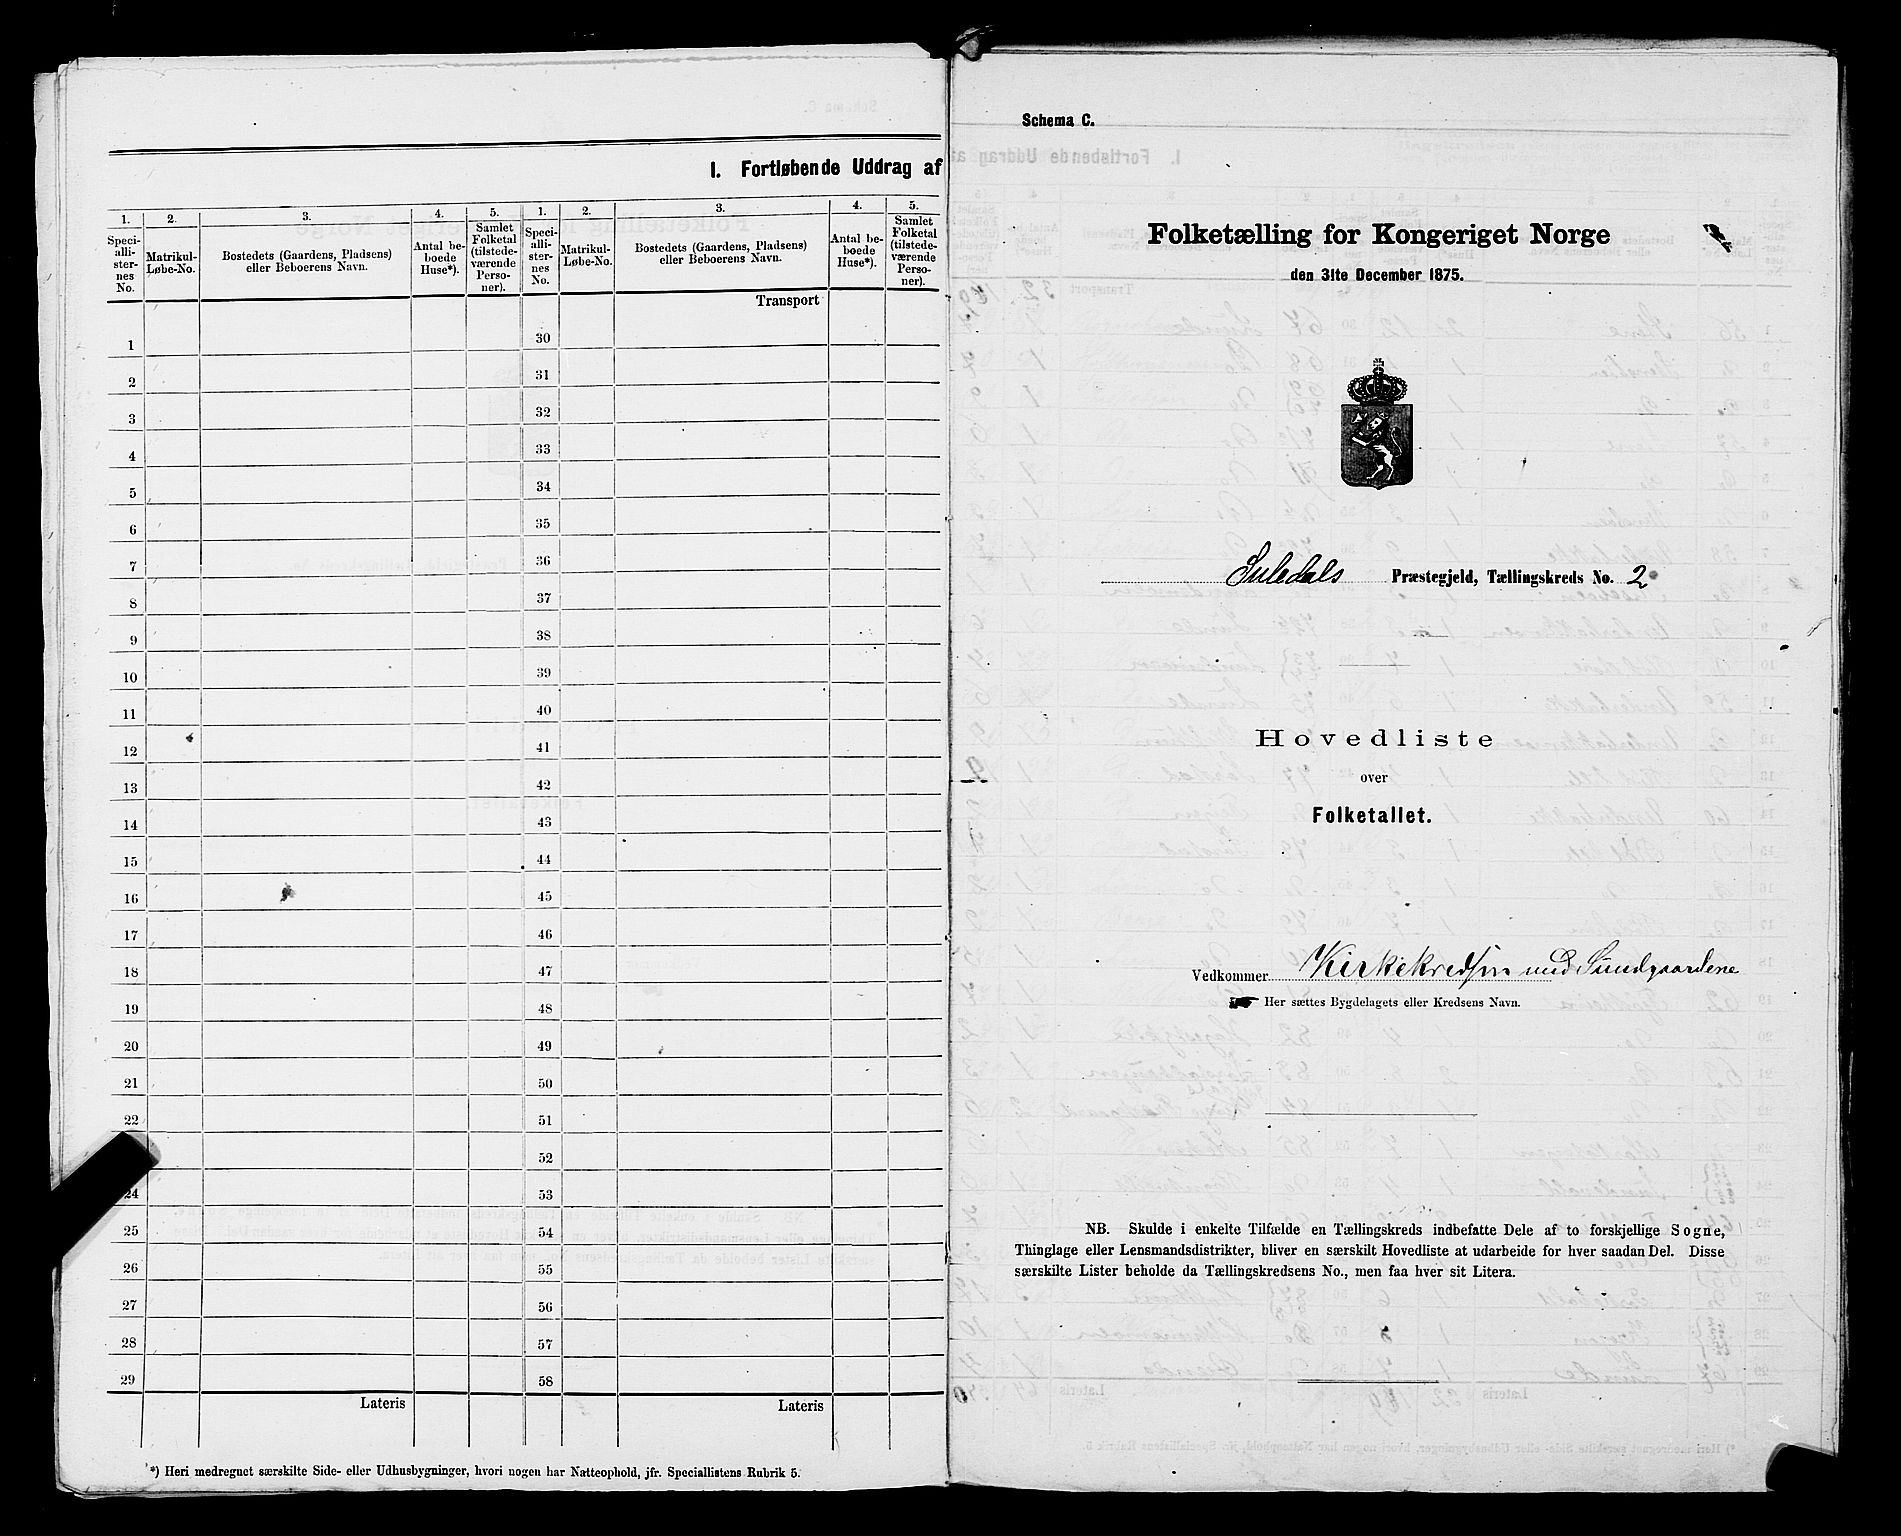 I. Fortløbende Uddrag af
1. 2. 3. 4. 5. 1. 2. 3. 4. 5.
Speci-
alli-
ster-
nes
No.
Matrikul-
Løbe-No.
Bostedets (Gaardens, Pladsens)
eller Beboerens Navn.
Antal be-
boede
Huse*).
Samlet
Folketal
(tilstede-
værende
Perso-
ner).
Speci-
alli-
ster-
nes
No.
Matrikul-
Løbe-No.
Bostedets (Gaardens, Pladsens)
eller Beboerens Navn.
Antal be-
boede
Huse*).
Samlet
Folketal
(tilstede-
værende
Perso-
ner).
Transport
1 30
2 31
3 32
4 33
5 34
6 35
7 36
8 37
9 38
10 39
11 40
12 41
13 42
14 43
15 44
16 45
17 46
18 47
19 48
20 49
21 50
22 51
52
24 53
25 54
26 55
27 56
28 57
29 58
Lateris Lateris
*) Heri medregnet særskilte Side- eller Udhusbygninger, hvori nogen har Natteophold, jfr. Speciallistens Rubrik 5.
Schema C.
Folketælling for Kongeriget Norge
den 31te December 1875.
Suledals Præstegjeld, Tællingskreds No. 2
Hovedliste
over
Folketallet.
Vedkommer Kirkekredsen med Sundgaardene
Her sættes Bygdelagets eller Kredsens Navn.
NB. Skulde i enkelte Tilfælde en Tællingskreds indbefatte Dele af to forskjellige Sogne,
Thinglage eller Lensmandsdistrikter, bliver en særskilt Hovedliste at udarbeide for hver saadan Del. Disse
særskilte Lister beholde da Tællingskredsens No., men faa hver sit Litera.